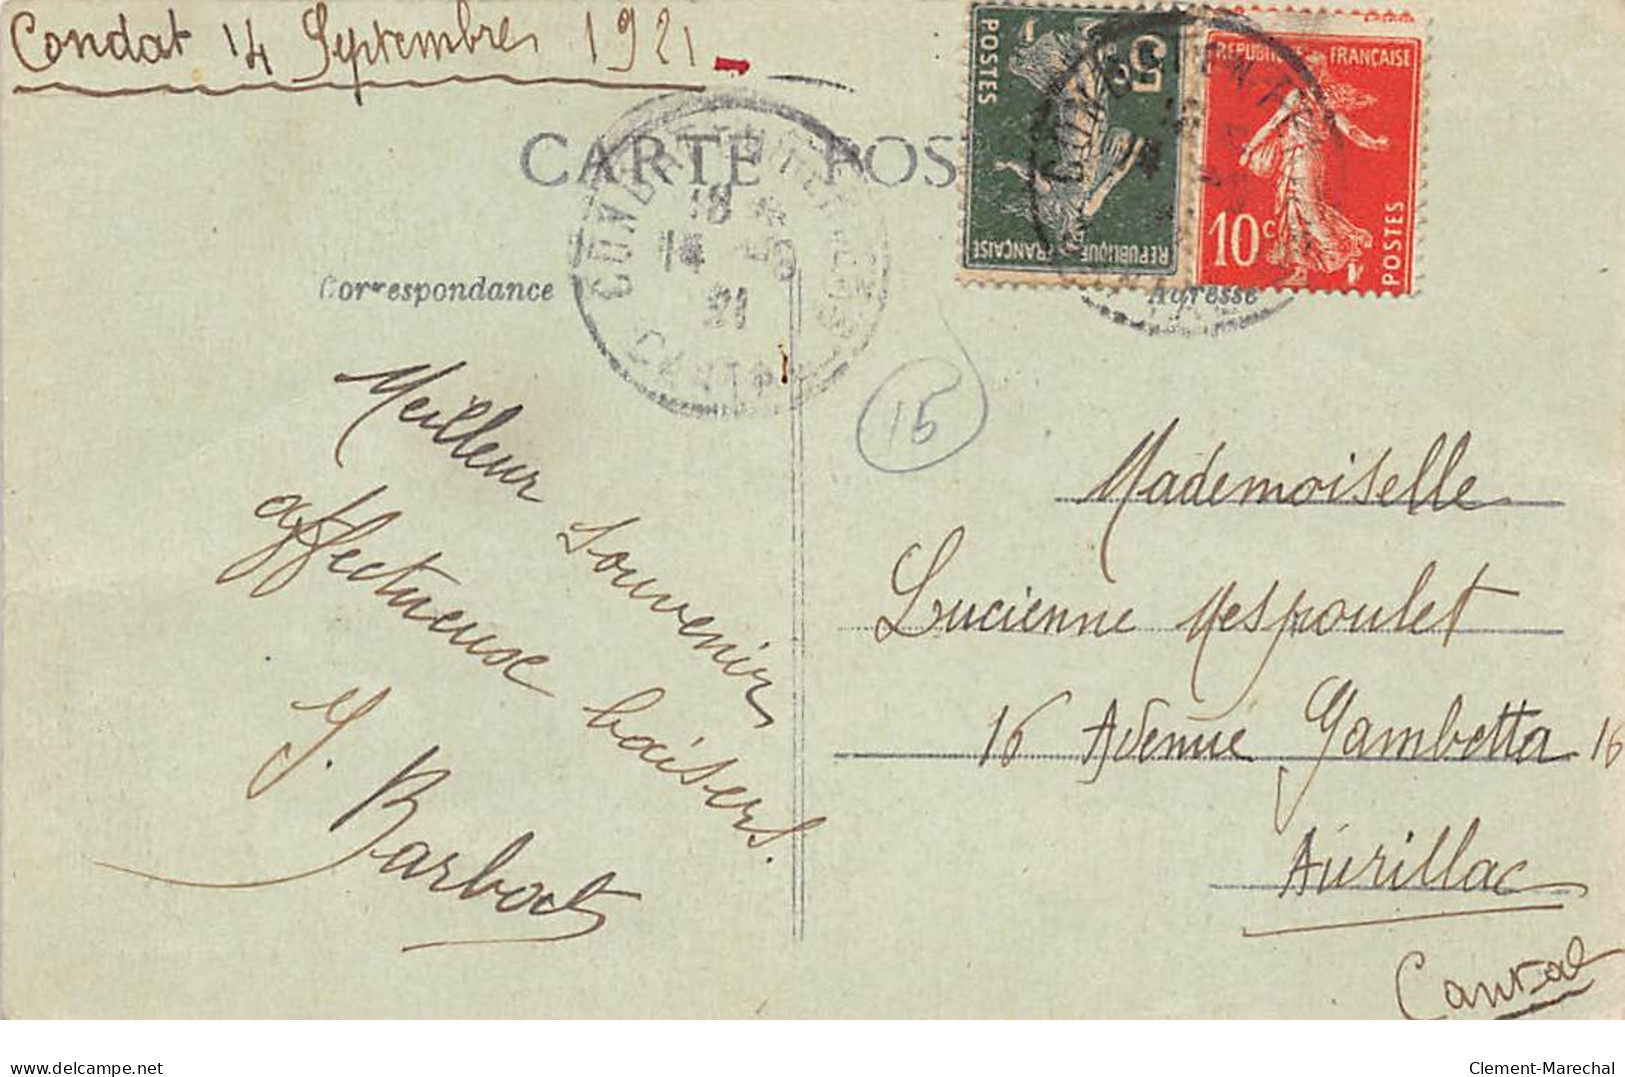 Condat 14 Septembre 1921
CARTE POS
POSTES
5c
REPUBLIQUE FRANÇAISE
REPUBLIQUE FRANÇAISE
10c
POSTES
CONDAT-EN-FENIERS
18
14
21
CANTAL
Correspondance
Adresse
15
Meilleur souvenir
affectueuse baisers.
Mademoiselle
Lucienne Mespoulet
16 Avenue Gambetta 16
Aurillac
Cantal
delcampe.net
Clement-Marechal